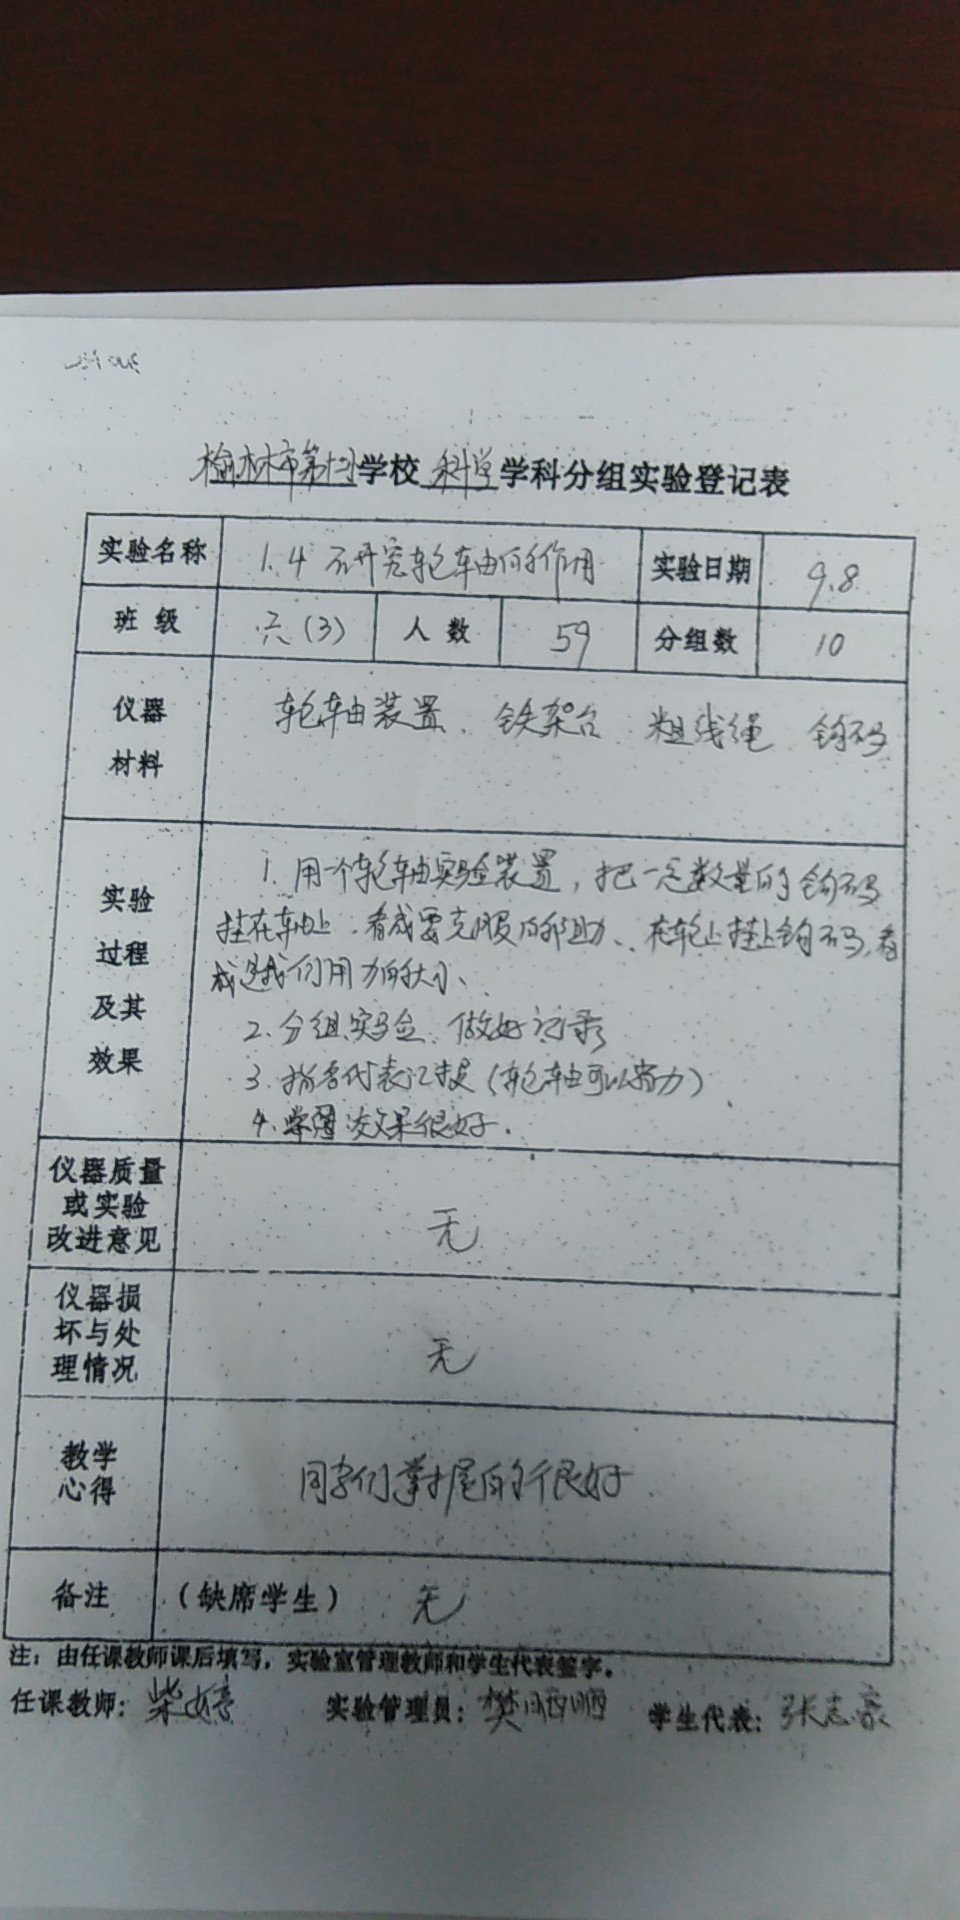 榆林市第十小学校 科学 学科分组实验登记表
实验名称 1.4 研究轮轴的作用 实验日期 9.8
班级 六(3) 人数 59 分组数 10
仪器材料 轮轴装置、铁架台 粗线绳 钩码
实验过程及其效果
1. 用个轮轴实验装置，把一定数量的钩码
挂在轴上，看成要克服的阻力、在轮上挂上钩码，看
成是我们用力的大小、
2. 分组实验、做好记录
3. 指名代表汇报（轮轴可以省力）
4. 掌握效果很好.
仪器质量或实验改进意见 无
仪器损坏与处理情况 无
教学心得 同学们掌握的很好
备注 （缺席学生） 无
注：由任课教师课后填写，实验室管理教师和学生代表签字。
任课教师：柴婷 实验管理员：樊晒晒 学生代表：张志豪